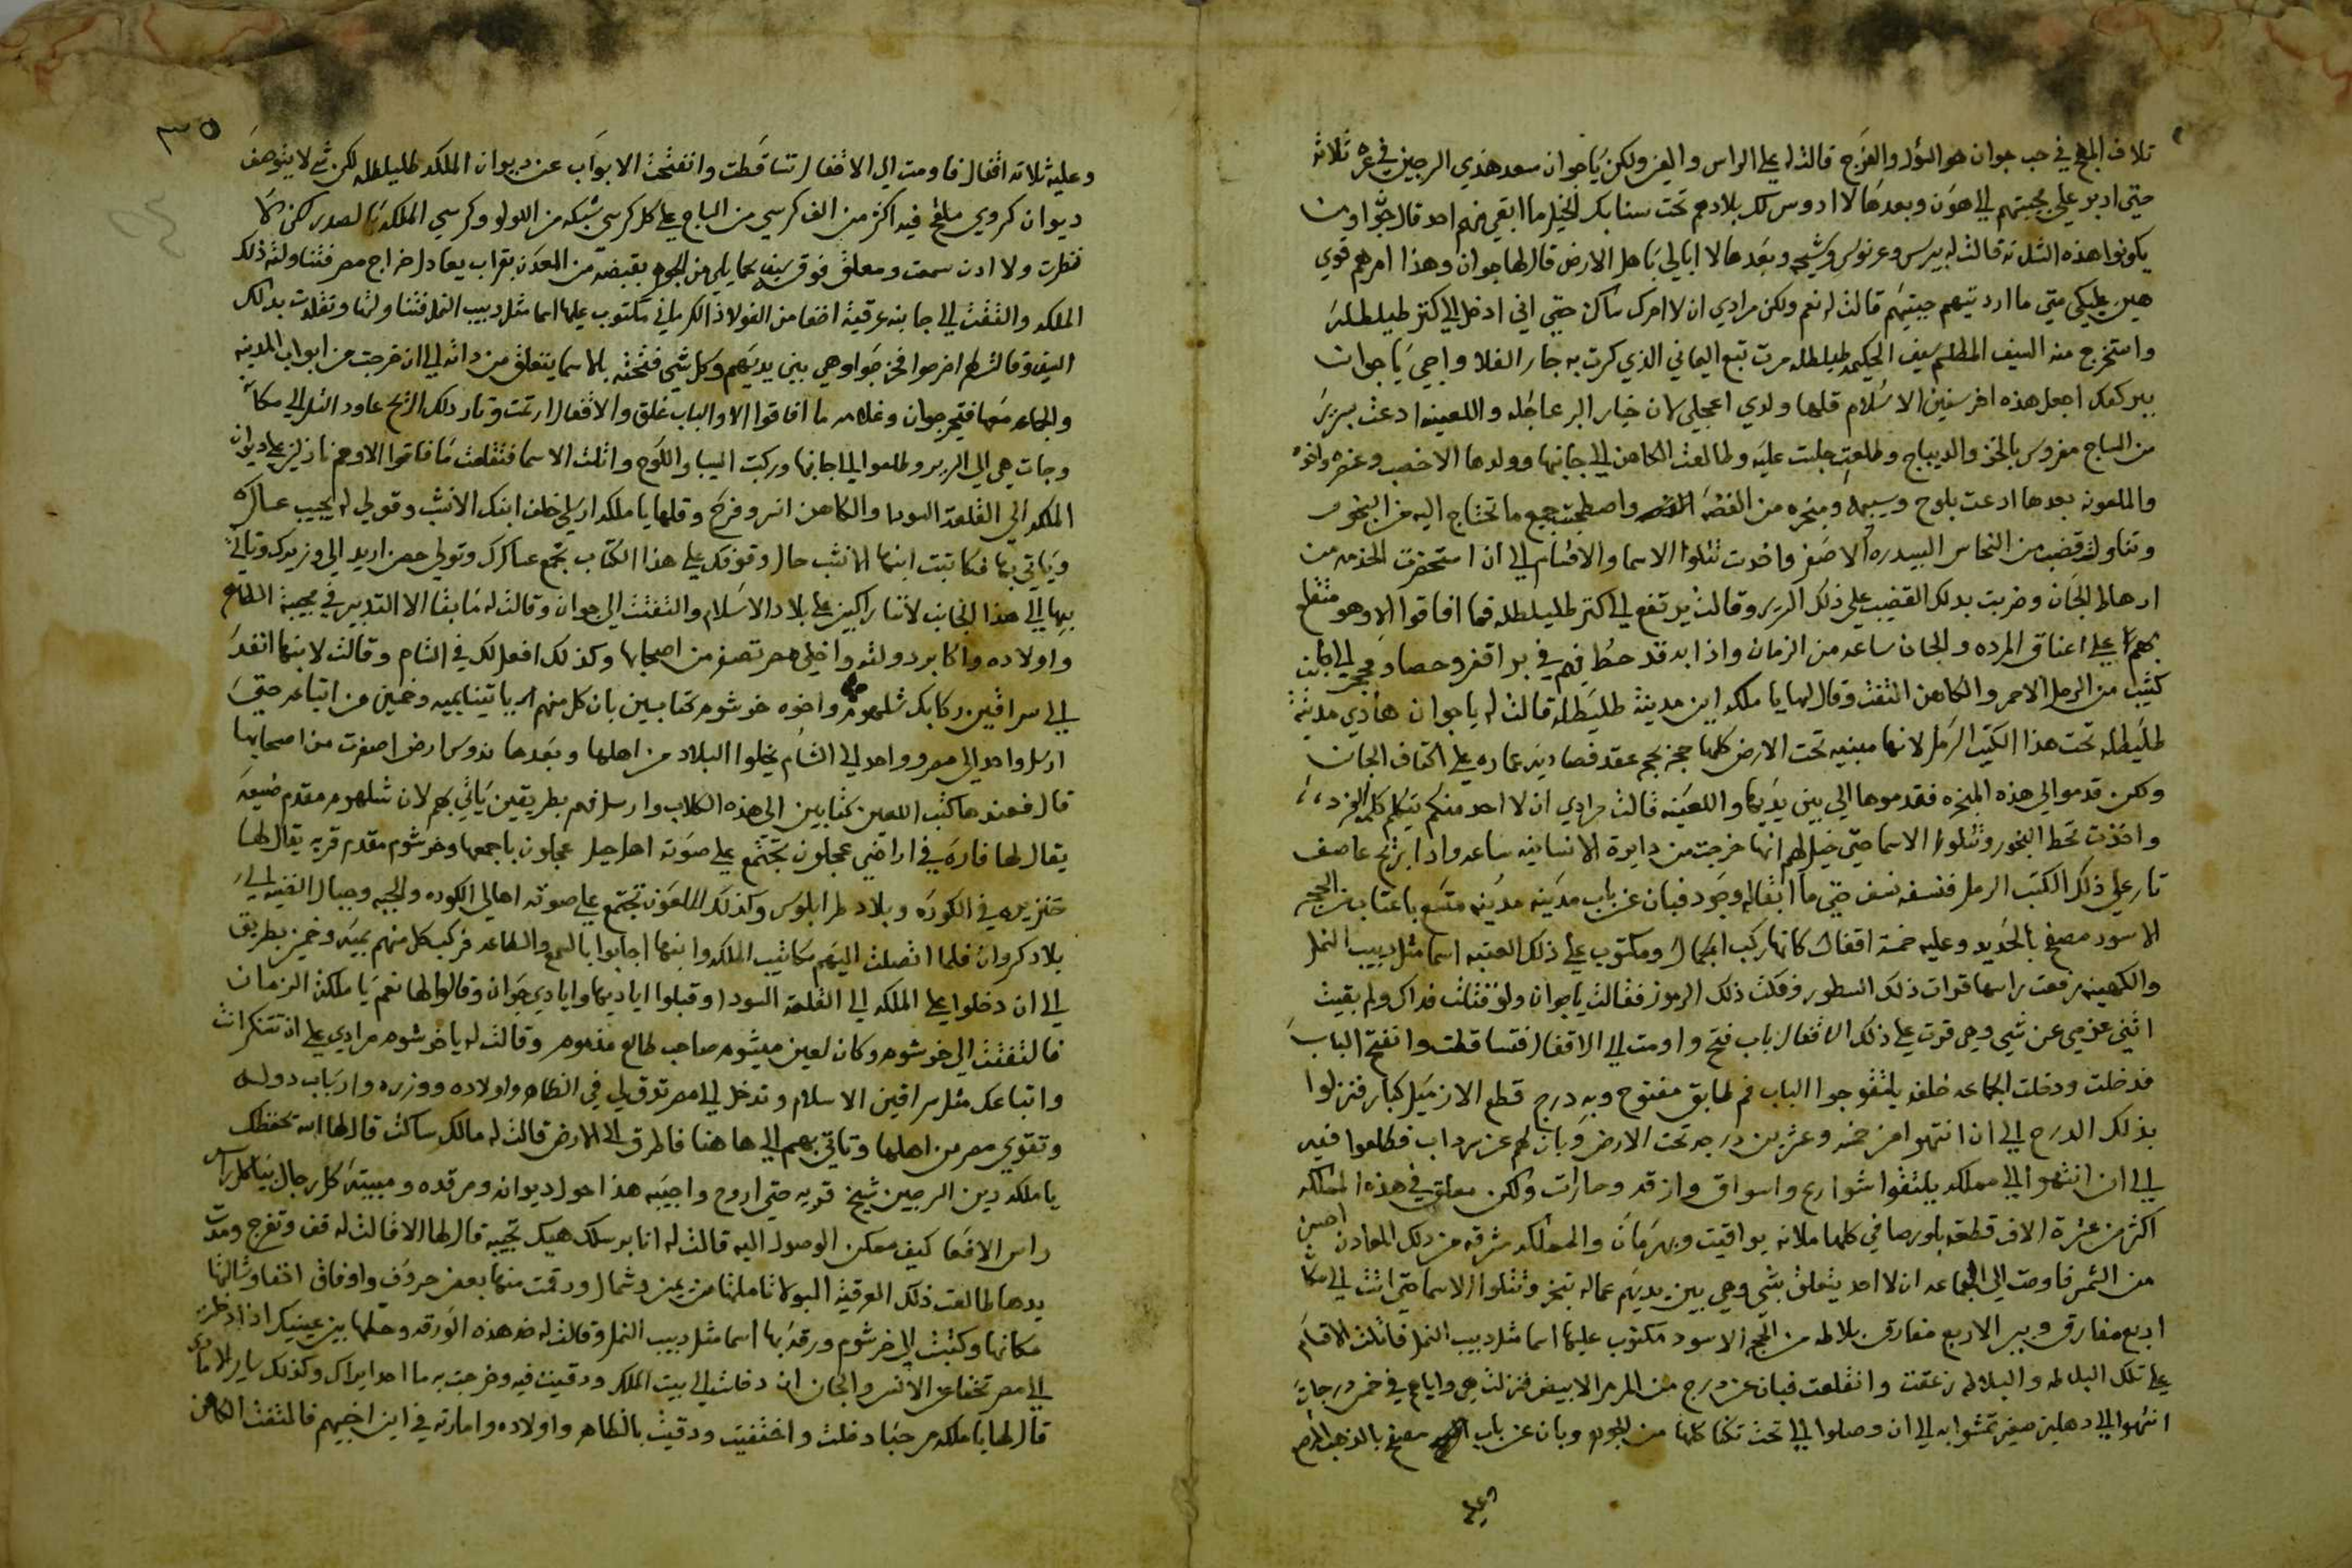 تلاف المهج في حب جوان هو السؤل والفرج قالتله على الراس والعين ولكن يا جوان سعد هذي الرجين في عزه ثلاثه
حتى ادبر على مجيتهم الي هون وبعدها لا ادوس لك بلادهم تحت سنابك الخيل ما ابقي منهم احد قال جوان ومن
يكونوا هذه الثلاته قالت له بيبرس وعرنوس وشيحه وبعدها لا ابالي باهل الارض قال لها جوان وهذا امرهم قوي
هين عليكي متى ما اردتيهم جبتيهم قالت له نعم ولكن مرادي ان لا احرك ساكن حتى اني ادخل الي كنز طليطله
واستخرج منه السيف المطلسم سيف الحكيمه طليطله مرت تبع اليماني الذي كرت به جار الفلا واجي يا جوان
ببركتك اجعل هذه اخر سنين الاسلام قلها ولدي اعجلي لان خيار البر عاجله واللعينه ادعت بسرير
من الساج مفروش بالخز والديباج وطلعت جلست عليه وطالعت الكاهن الي جانبها وولدها الاخصب وعنصره واخوه
والملعونه بعدها ادعت بلوح وسيبه ومبخره من الفضه واصطحبت جميع ما تحتاج اليه من البخور
وتناولت قضيب من النحاس البيدره الاصفر واخدت تتلوا الاسما والاقسام الي ان استحضرت الخدمه من
ارهاط الجان وضربت بدلك القضيب على ذلك السرير وقالت يرتفع الي كنز طليطله فما افاقوا الا وهو متقلع
بهم على اعناق المرده والجان ساعه من الزمان واذا به قد حط فيهم في بر اقفر وحصا وحجر الي جانب
كثيب من الرمل الاحمر والكاهن التفت وقال لها يا ملكه اين مدينة طليطله قالت له يا جوان هادي مدينة
طليطله تحت هذا الكتب الرمل لانها مبنيه تحت الارض كلها حجر بحجر عقد فصاديه عماره على اكتاف الجان
ولكن قدموا لي هذه المبخره فقدموها الي بين يديها واللعينه قالت مرادي ان لا احد منكم يتكلم كلمة الفرد
واخذت تحط البخور وتتلوا الاسما حتى خيل لهم انها خرجت من دايرة الانسانيه ساعه واذا بريح عاصف
ثار على ذلك الكتب الرمل فنسفه نسف حتى ما ابقاله وجود فبان عن باب مدينه مدينه متسع باعتاب من الحجر
الاسود مصفح بالحديد وعليه خمسة اقفال كانها ركب الجمال ومكتوب على ذلك العتبه اسما مثل دبيب النمل
والكهينه رفعت راسها قرات ذلك السطور وفكت ذلك الرموز فقالت يا جوان ولو قتلت فداك ولم بقيت
اثني عزمي عن شيي وهي قرت على ذلك الاقفال باب فتح واومت الي الاقفال فتساقطت وانفتح الباب
فدخلت ودخلت الجماعه خلفه يلتقوا جوا الباب فم طابق مفتوح وبه درج قطع الازميل كبار فنزلوا
بذلك الدرج الي ان انتهوا من خمسه وعشرين درجه تحت الارض وبان لهم عن سرداب فطلعوا فيه
الي ان انتهوا الي مملكه يلتقوا شوارع واسواق وازقه وحارات ولكن معلق في هذه المملكه
اكثر من عشرة الاف قطعه بلور صافي كلها ملانه يواقيت وبهرمان والمملكه مشرقه من ذلك المعادن احسن
من الشمس فاومت الي الجماعه ان لا احد يتعلق بشي وهي بين يديهم عماله تبخر وتتلوا الاسما حتى اتت الي مكان
اربع مفارق وبير الاربع مفارق بلاطه من الحجر الاسود مكتوب عليها اسما مثل دبيب النمل فاتلت الاقسام
على تلك البلاطه والبلاطه زعقت وانقلعت فبان عن درج من المرمر الابيض فنزلت هي واياهم في خمس درجات
انتهوا الي دهليز صغير تمشوا به الي ان وصلوا الي تحت تكنا كلها من الجوهر وبان عن باب مصفح بالذهب الاحمر
وعليه
٣٥
وعليه ثلاثة اقفال فاومت الي الاقفال تساقطت وانفتحت الابواب عن ديوان الملكه طليطله لكن شي لا يتوصف
ديوان كروي ملقح فيه اكثر من الف كرسي من الساج على كل كرسي شبكه من اللولو وكرسي الملكه بالصدر لكن لا
نظرت ولا ادن سمعت ومعلق فوق سيف بحمايلي من الجوهر بقبضه من المعدن بقراب يعادل خراج مصر فتناولته ذلك
الملكه والتفتت الي جانبه عرقية اخفا من الفولاذ الكرماني مكتوب عليها اسما مثل دبيب النمل فتناولتها وتقلدت بدلك
السيف وقالت لهم اخرجوا فخرجوا وهي بين يديهم وكل شي فتحته بالاسما يتغلق من داته الي ان خرجت من ابواب المدينه
والجماعه معها فتيحر جوان وغلامه ما افاقوا الا والباب غلق والاقفال ارتمت وثار دلك الريح عاود التل الي مكانه
وجات هي الي السرير وطلعوا الي جانبها وركبت السيبا واللوح واتلت الاسما فتقلعت ما فاقوا الا وهم نازلين على ديوان
الملكه الي القلعه السودا والكاهن انسر وفرح وقلها يا ملكه ارسلي خلف ابنك الانثب وقولي له يجيب عساكره
وياتي بها فكاتبت ابنها الانثب حال وقوفك على هذا الكتاب تجمع عساكرك وتولي حصن اريد الي وزيرك وتاتي
بها الي هذا الجانب لاننا راكبين على بلاد الاسلام والتفتت الي جوان وقالت له ما بقا الا التدبير في مجيبة الظاهر
واولاده واكابر دولته واخلي مصر تصفر من اصحابها وكذلك افعل لك في الشام وقالت لابنها انفد
الي سراقين ركابك شلهوم واخوه خرشوم كتابين بان كل منهم الي ياتينا بميه وخمسين من اتباعه حتى
ارسل واحد الي مصر وواحد الي الشام يخلوا البلاد من اهلها وبعدها ندوس ارض اصفرت من اصحابها
قال فعندها كتب اللعين كتابين الي هذه الكلاب وارسل فيهم بطريقين ياتي بهم لان شلهوم مقدم ضيعه
يقال لها فاره في اراضي عجلون تجتمع على صوته اهل جبل عجلون باجمعها وخرشوم مقدم قريه يقال لها
خنزيره في الكوره وبلاد طرابلوس وكذلك الملعون تجتمع على صوته اهالي الكوره والجبه وجبال الضنيه الي
بلاد كروان فلما اتصلت اليهم مكاتيب الملكه وابنها اجابوا بالسمع والطاعه فركب كل منهم بميه وخمسين بطريق
الي ان دخلوا على الملكه الي القلعه السودا وقبلوا اياديها وايادي جوان وقالوا لها نعم يا ملكة الزمان
فالتفتت الي خرشوم وكان لعين ميشوم صاحب طالع مذموم وقالت له يا خرشوم مرادي على ان تتنكر انت
واتباعك مثل سراقين الاسلام وتدخل الي مصر تسرق لي في الظاهر واولاده ووزره وارباب دولته
وتقوي مصر من اهلها وتاتي بهم الي ها هنا فاطرق الي الارض قالت له مالك ساكت قال لها الله يحفظك
يا ملكه دين الرجين شيخ قريه حتى اروح واجيبه هذا حول ديوانه ومرقده ومبيته كل رجال
راس الافعا كيف ممكن الوصول اليه قالت له انا برسلك هيك تجيبه قال لها الا قالت له قف وتفرج ومدت
يدها طالعت ذلك العرقية البولاد تاملتها من يمين وشمال ورقمت منها بعض حروف واوفاق اخفا وشالتها
مكانها وكتبت الي خرشوم ورقه بها اسما مثل دبيب النمل وقالت له خد هذه الورقه وحطها بين عينيك اذا دخلت
الي مصر تخفا عن الانس والجان ان دخلت الي بيت الملك ودقيت فيه وخرجت به ما احد ايراك وكذلك ساير الاماكن
قال لها يا ملكه مرحبا دخلت واختفيت ودقيت بالظاهر واولاده وامارته في اين اخبيهم فالتفتت الكاهن